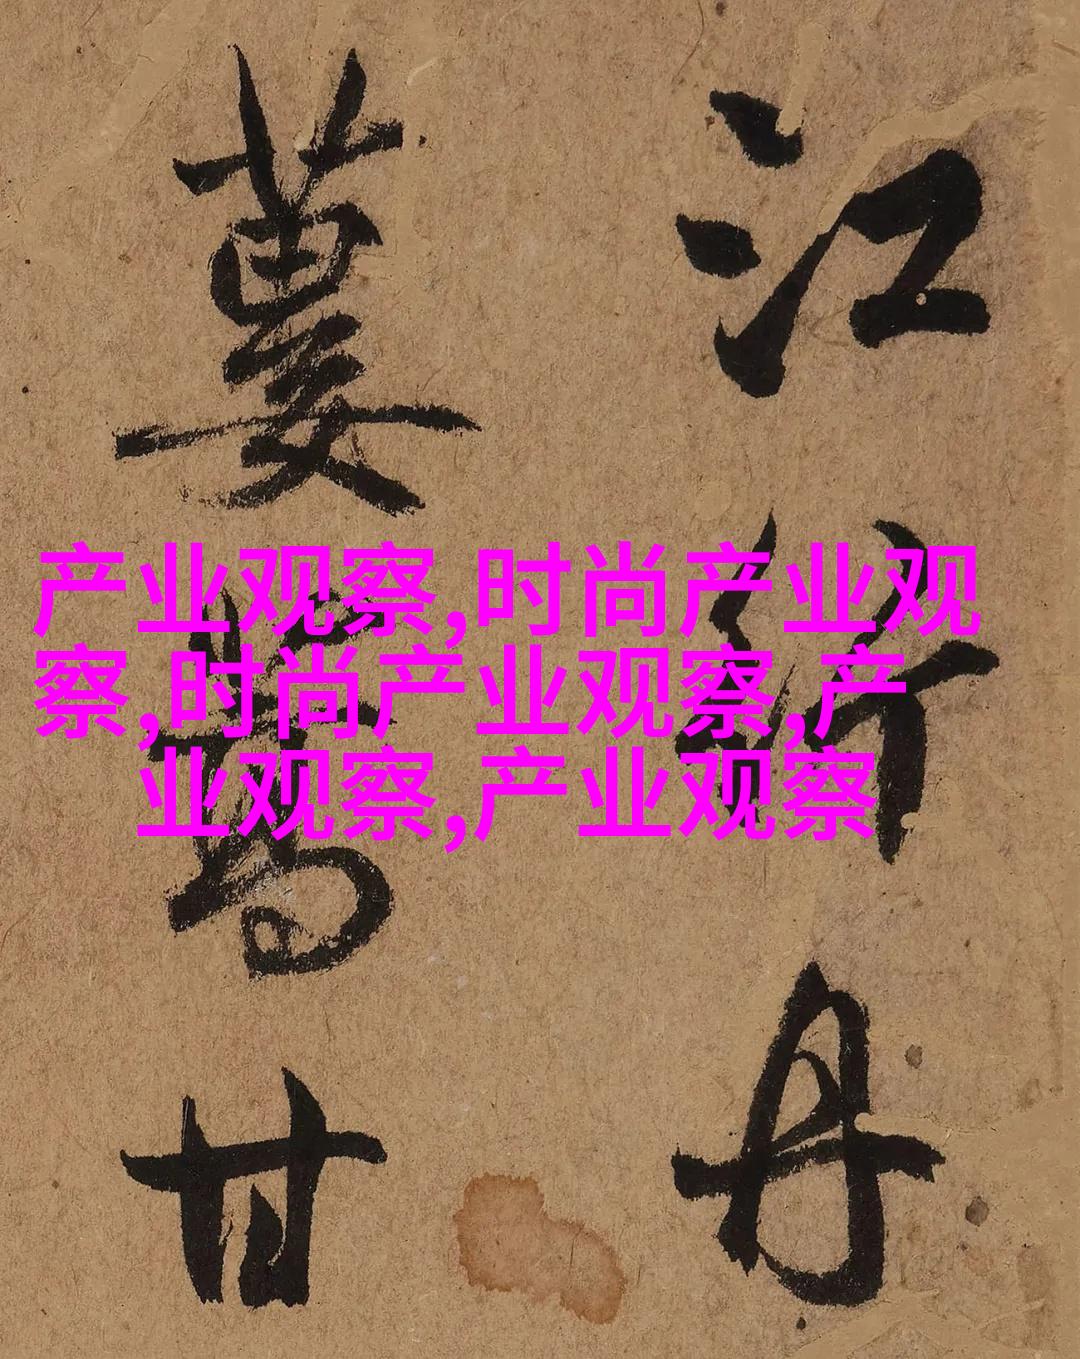 江竹丹
蔞萵甘
产业观察,时尚产业观
察,时尚产业观察,产
业观察,产业观察